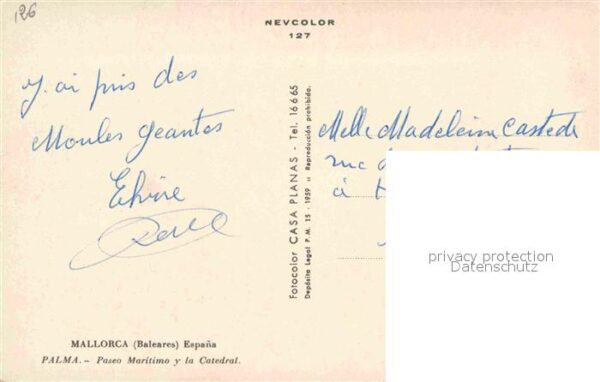 126
NEVCOLOR
127
J'ai pris des
Moules geantes
Fotocolor CASA PLANAS - Tel. 16665
Depósito Legal P.M. 15 - 1959 :: Reproducción prohibida.
Melle Madeleine Castede
rue
à
privacy protection
Datenschutz
MALLORCA (Baleares) España
PALMA. - Paseo Marítimo y la Catedral.